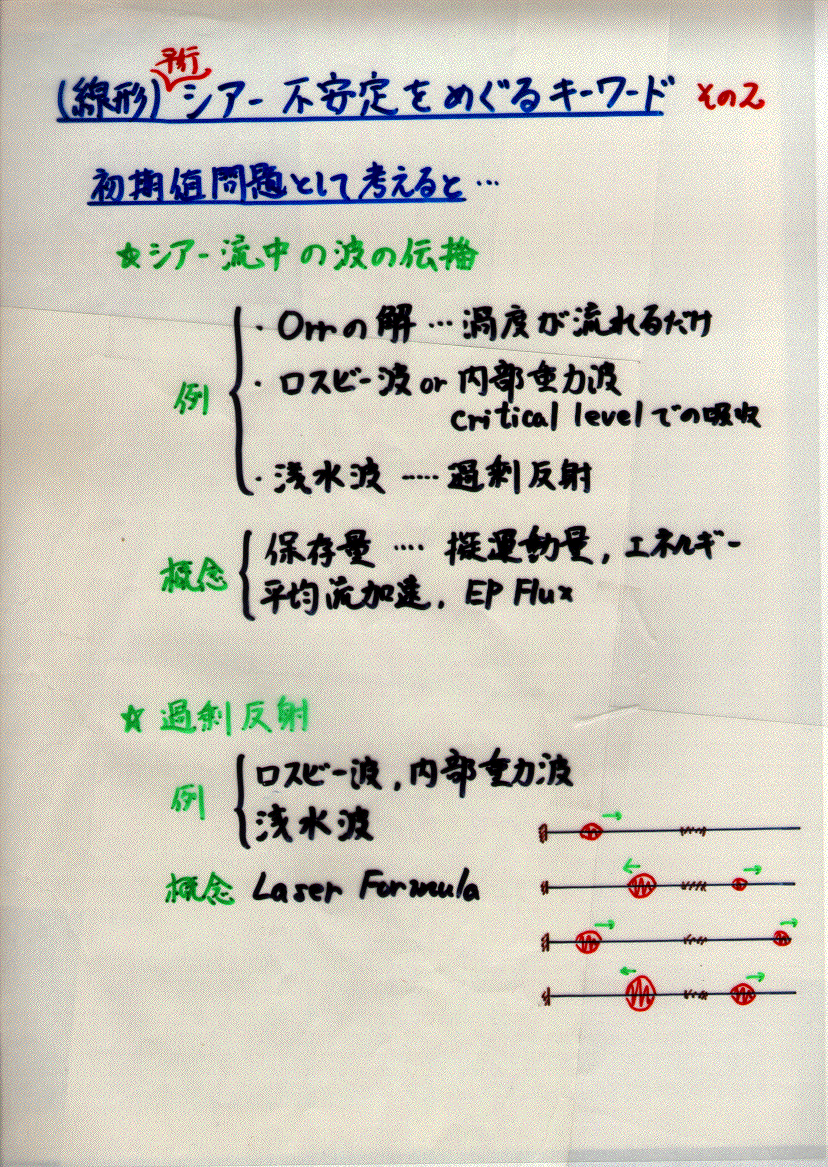 平行
(線形)シアー不安定をめぐるキーワード その2
初期値問題として考えると…
☆シアー流中の波の伝播
例
・Orrの解 … 渦度が流れるだけ
・ロスビー波 or 内部重力波
critical level での吸収
・浅水波 …… 過剰反射
概念
保存量 …. 擬運動量, エネルギー
平均流加速, EP Flux
☆過剰反射
例
ロスビー波, 内部重力波
浅水波
概念 Laser Formula